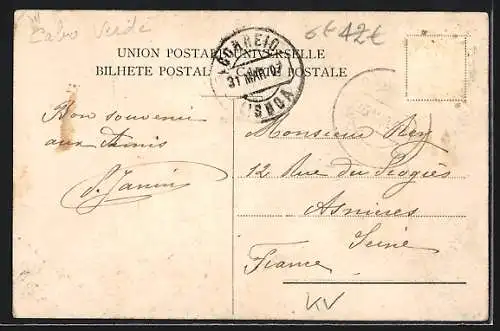 Cabo Verde
6€ 42€
UNION POSTALE UNIVERSELLE
BILHETE POSTAL CARTE POSTALE
CORREIO
31 MAR 07
LISBOA
Bon souvenir
aux Amis
Monsieur Rey
12 Rue du Progrès
Asnieres
Seine
France
KV